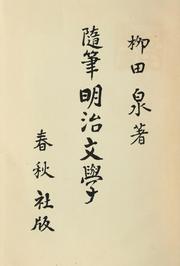 柳田泉著
隨筆明治文學
春秋社版